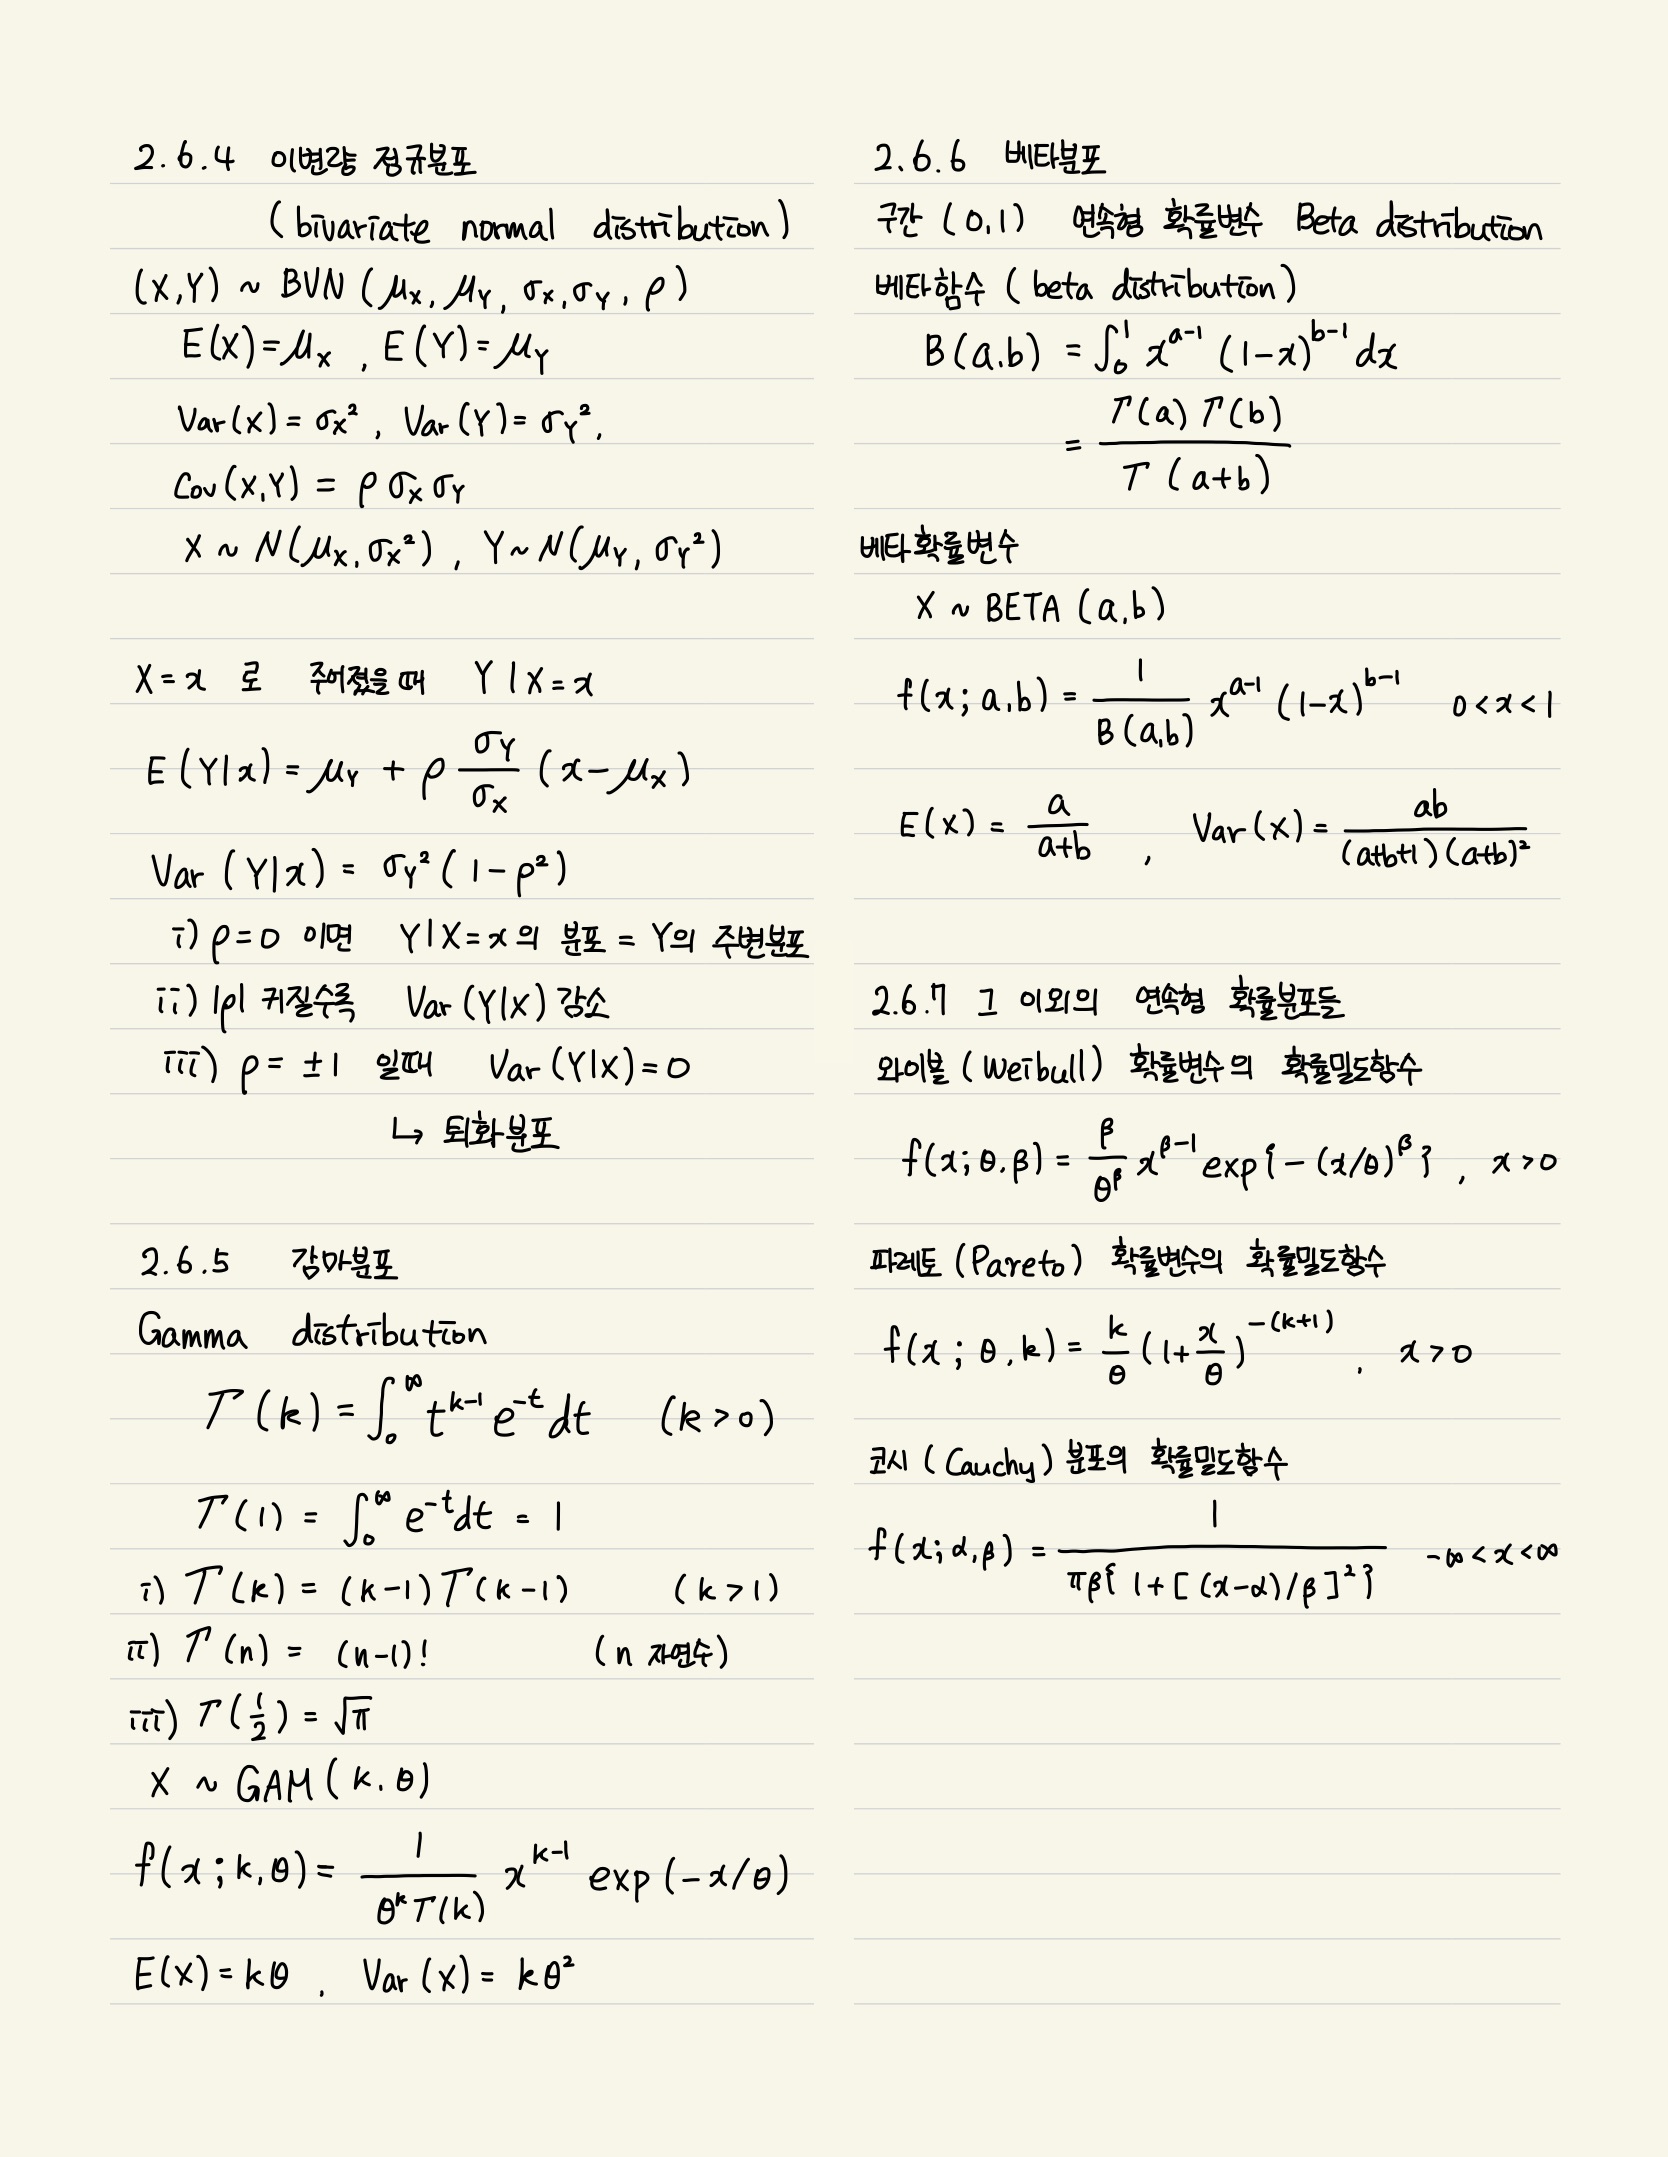 2.6.4 이변량 정규분포
(bivariate normal distribution)
(X,Y) ~ BVN (μ_X, μ_Y, σ_X, σ_Y, ρ)
E(X)=μ_X , E(Y)=μ_Y
Var(X)= σ_X², Var(Y)= σ_Y²,
Cov(X,Y) = ρ σ_X σ_Y
X ~ N(μ_X, σ_X²) , Y~N(μ_Y, σ_Y²)
X=x 로 주어졌을 때 Y|X=x
E(Y|x) = μ_Y + ρ σ_Y/σ_X (x-μ_X)
Var (Y|x) = σ_Y² (1-ρ²)
i) ρ=0 이면 Y|X=x 의 분포 = Y의 주변분포
ii) |ρ| 커질수록 Var(Y|X) 감소
iii) ρ= ±1 일때 Var(Y|X)=0
↳ 퇴화분포
2.6.5 감마분포
Gamma distribution
Γ(k) = ∫₀^∞ t^(k-1) e^(-t) dt (k>0)
Γ(1) = ∫₀^∞ e^(-t) dt = 1
i) Γ(k) = (k-1)Γ(k-1) (k>1)
ii) Γ(n) = (n-1)! (n 자연수)
iii) Γ(1/2) = √π
X ~ GAM(k, θ)
f(x; k,θ) = 1/(θ^k Γ(k)) x^(k-1) exp(-x/θ)
E(X)=kθ , Var(X)= kθ²
2.6.6 베타분포
구간 (0,1) 연속형 확률변수 Beta distribution
베타함수 (beta distribution)
B(a,b) = ∫₀¹ x^(a-1) (1-x)^(b-1) dx
= Γ(a)Γ(b) / Γ(a+b)
베타확률변수
X ~ BETA (a,b)
f(x; a,b) = 1/B(a,b) x^(a-1) (1-x)^(b-1) 0<x<1
E(X) = a/(a+b) , Var(X) = ab/((a+b+1)(a+b)²)
2.6.7 그 이외의 연속형 확률분포들
와이블 (Weibull) 확률변수의 확률밀도함수
f(x; θ,β) = β/θ^β x^(β-1) exp{-(x/θ)^β} , x>0
파레토 (Pareto) 확률변수의 확률밀도함수
f(x; θ,k) = k/θ (1+x/θ)^(-(k+1)) , x>0
코시 (Cauchy) 분포의 확률밀도함수
f(x; α,β) = 1/(πβ{1+[(x-α)/β]²}) -∞<x<∞